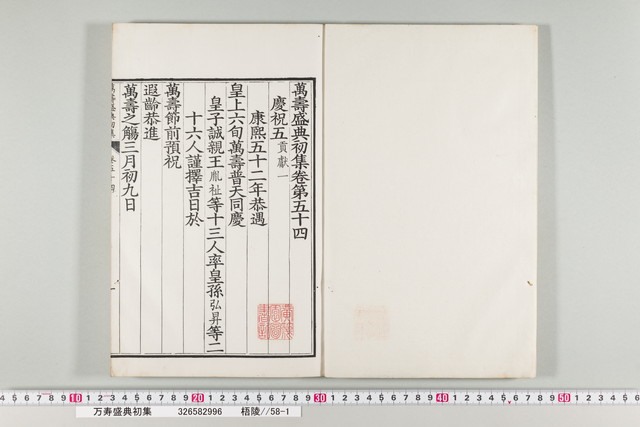 萬壽盛典初集卷第五十四
慶祝五貢獻一
康熙五十二年恭遇
皇上六旬萬壽普天同慶
皇子誠親王胤祉等十三人率皇孫弘昇等二
十六人謹擇吉日於
萬壽節前預祝
遐齡恭進
萬壽之觴三月初九日
萬壽盛典初集 卷五十四 一
10 20 30 40 50
万寿盛典初集 326582996 梧陵//58-1